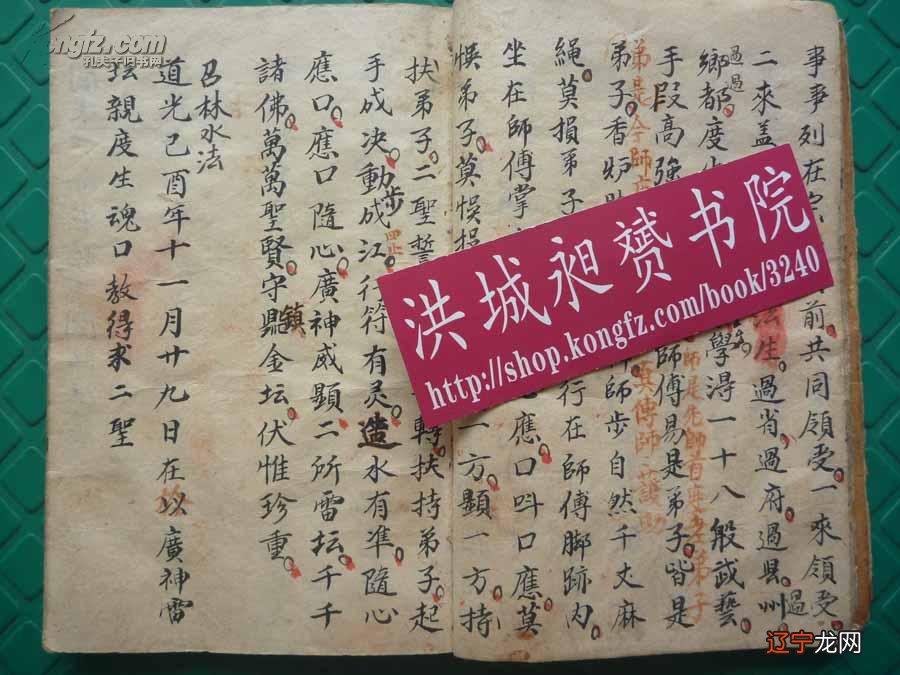 事事列在
前共同領受一來領受
二來盖
法生過省過府過县州過
鄉都度
學淂一十八般武藝
手段高強
師傅易是弟子皆是
弟是今師
弟子香炉
師步自然千丈麻
繩莫損弟子
行在師傅脚跡内
坐在師傅掌
應口呌口應莫
悮弟子莫悮
一方顯一方持
扶弟子二聖誓
轉扶持弟子起
手成決動步成江行符有灵造水有凖隨心
應口應口隨心廣神威顯二所雷坛千千
諸佛萬萬聖賢守鎮金坛伏惟珍重
召林水法
道光己酉年十一月廿九日在以廣神雷
坛親度生魂口教得求二聖
洪城昶赟书院
http://shop.kongfz.com/book/3240
kongfz.com
孔夫子旧书网
辽宁龙网